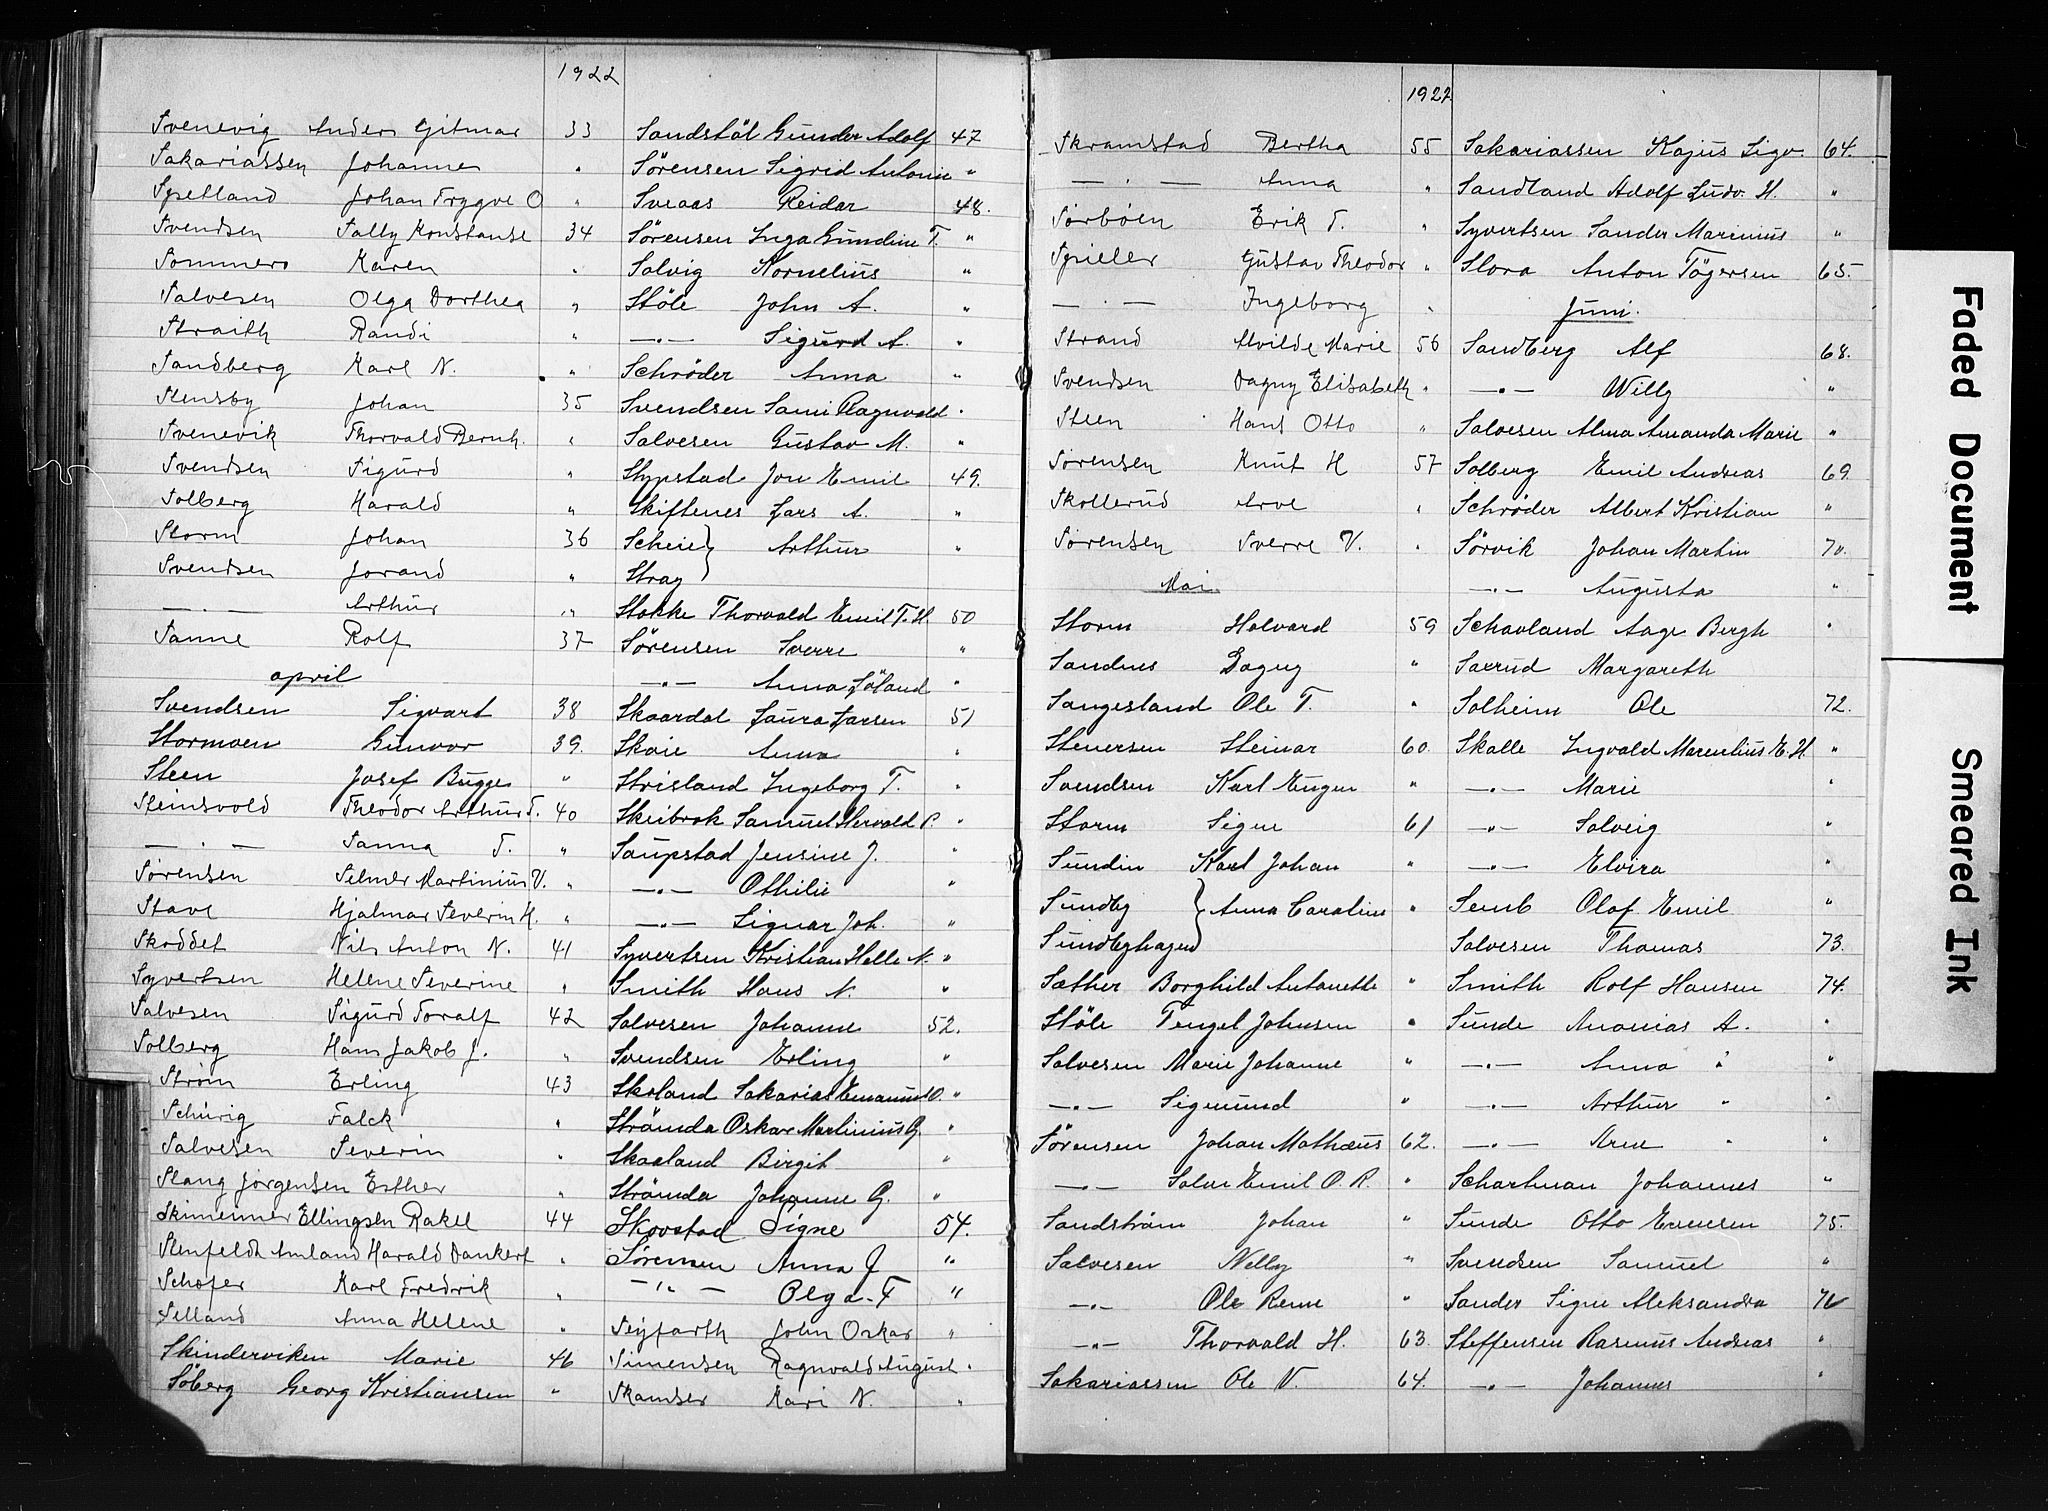 1922
Svenevig Anders Gitmar 33
Sakariassen Johanne "
Spetland Johan Trygve O "
Svendsen Sally Konstanse 34
Sommero Karen "
Salvesen Olga Dorthea "
Straith Randi "
Sandberg Karl N. "
Stensby Johan 35
Svenevik Thorvald Bernh. "
Svendsen Sigurd "
Solberg Harald "
Storm Johan 36
Svendsen Jorand "
— . — Arthur "
Sanne Rolf 37
april
Svendsen Sigvart 38
Stormoen Gunvor 39.
Steen Josef Bugge "
Steinsvold Theodor Arthur T. 40
— . — Sanna T. "
Sørensen Selmer Martinius V. "
Stave Hjalmar Severin H. "
Skoddet Nils Anton N. 41
Syvertsen Helene Severine "
Salvesen Sigurd Toralf 42
Solberg Hans Jakob J. "
Strøm Erling 43
Schürig Falck "
Salvesen Severin "
Stang Jørgensen Esther "
Skimenner Ellingsen Rakel 44
Stenfeldt Amland Harald Dankert "
Schøfer Karl Fredrik "
Selland Anna Helene "
Skinderviken Marie 46
Söberg Georg Kristiansen "
Sandstöl Gunder Adolf 47
Sörensen Sigrid Antonie "
Sveaas Reidar 48.
Sörensen Inga Gundine T. "
Solvig Kornelius "
Stöle John A. "
—"— Sigurd A. "
Schrøder Anna "
Svendsen Sami Ragnvald "
Salvesen Gustav M. "
Stypstad Jon Emil 49.
Skiftenes Lars A. "
Scheie } Arthur "
Stray }
Stokke Thorvald Emil T. H. 50
Sörensen Sverre "
—"— Anna Löland "
Skaardal Laura Larsen 51
Skoie Anna "
Strisland Ingeborg T. "
Skeibrok Samuel Stervald P. "
Saupstad Jensine J. "
—"— Othilie "
—"— Signar Joh. "
Syvertsen Kristian Helle N. "
Smith Hans N. "
Salvesen Johanne 52.
Svendsen Erling "
Skoland Sakarias Emanuel O. "
Strömda Oskar Martinius G. "
Skaaland Birgit "
Strömda Johanne G. "
Skovstad Signe 54.
Sørensen Anna J "
—"— Olga F "
Seyfarth John Oskar "
Simensen Ragnvald August "
Skamser Kari N. "
1922
Skramstad Bertha 55
— . — Anna "
Sørbøen Erik T. "
Spieler Gustav Theodor "
— . — Ingeborg "
Strand Alvilde Marie 56
Svendsen Dagny Elisabeth "
Steen Hans Otto "
Sørensen Knut H 57
Skollerud Arve "
Sørensen Sverre V. "
Mai
Storm Halvard 59
Sandnes Dagny "
Sangesland Ole T. "
Stenersen Steinar 60.
Svendsen Karl Eugen "
Storm Signe 61
Sundin Karl Johan "
Sundby } Anna Caroline "
Sundbyhagen }
Sæther Borghild Antonette "
Stöle Tengel Johnsen "
Salvesen Marie Johanne "
—"— Sigmund "
Sørensen Johan Mathæus 62.
—"— Salve Emil O. R. "
Sandström Johan "
Salvesen Nelly "
—"— Ole Rene "
—"— Thorvald H. 63.
Sakariassen Ole V. 64.
Sakariassen Kajus Sigv. 64.
Sandland Adolf Ludv. H. "
Syvertsen Sander Marinius "
Stora Anton Tögersen 65.
Juni.
Sandberg Alf 68.
—"— Willy "
Salvesen Alma Amanda Marie "
Solberg Emil Andreas 69.
Schrøder Albert Kristian "
Sörvik Johan Martin 70.
—"— Augusta "
Schavland Aage Bergh "
Saxrud Margareth
Solheim Ole 72.
Skalle Ingvald Marentius E. H. "
—"— Marie "
—"— Solveig "
—"— Elvira "
Semb Olaf Emil "
Salvesen Thomas 73.
Smith Rolf Hansen 74.
Sunde Ananias A. "
—"— Anna " "
—"— Arthur " "
—"— Arne " "
Schartman Johannes "
Sunde Otto Evensen 75.
Svendsen Samuel "
Sander Signe Aleksandra 76
Steffensen Rasmus Andreas "
—"— Johannes "
Faded Document
Smeared Ink